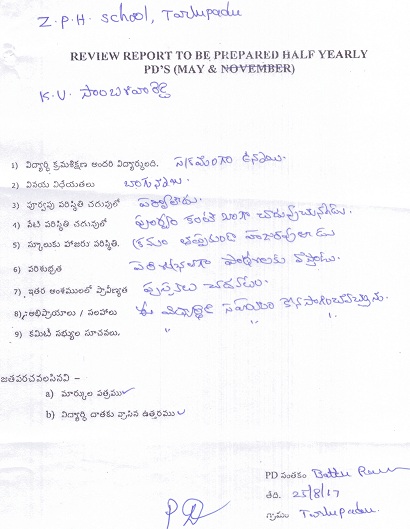 Z.P.H school, Tarlupadu
REVIEW REPORT TO BE PREPARED HALF YEARLY
PD'S (MAY & NOVEMBER)
K.V. సాంబశివారెడ్డి
1) విద్యార్థి క్రమశిక్షణ అందరి విద్యార్థులది. సక్రమంగా ఉన్నాయి.
2) వినయ విధేయతలు బాగున్నాయి.
3) పూర్వపు పరిస్థితి చదువులో పర్వాలేదు.
4) నేటి పరిస్థితి చదువులో పూర్వం కంటే బాగా చదువుచున్నాడు.
5) స్కూలుకు హాజరు పరిస్థితి. క్రమం తప్పకుండా
6) పరిశుభ్రత పరిశుభ్రంగా
7) ఇతర అంశములలో ప్రావీణ్యత పుస్తకాలు చదవడం.
8) అభిప్రాయాలు / సలహాలు ఈ విద్యార్థికి సహాయం
9) కమిటీ సభ్యుల సూచనలు. " " "
జతపరచవలసినవి –
a) మార్కుల పత్రము✓
b) విద్యార్థి దాతకు వ్రాసిన ఉత్తరము✓
PD సంతకం
తేది. 25/8/17
PD
గ్రామం Tarlupadu.